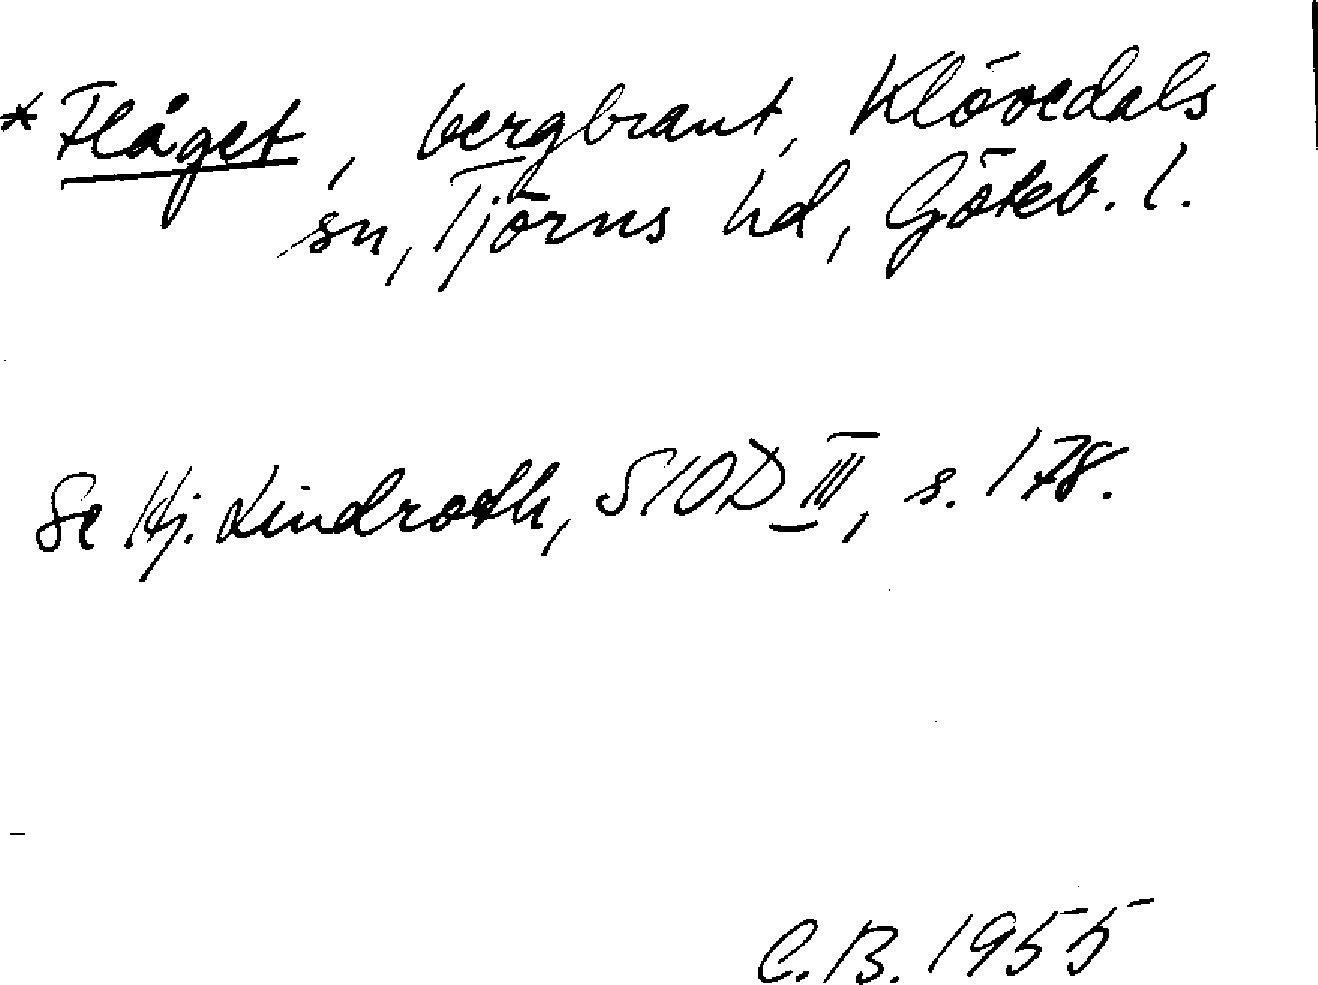 * Flåget, bergbrant, Klövedals
sn, Tjörns hd, Göteb. l.
Se Hj. Lindroth, SIOD III, s. 178.
C.B. 1955